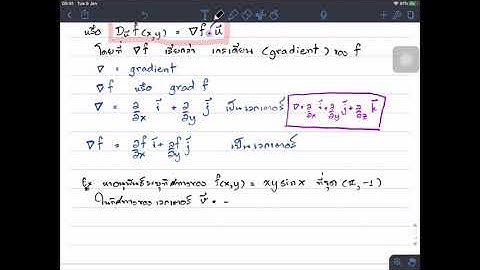 09:41 Tue 5 Jan
หรือ D_u⃗ f(x,y) = ∇f·u⃗
โดยที่ ∇f เรียกว่า เกรเดียน (gradient) ของ f
∇ = gradient
∇f หรือ grad f
∇ = ∂/∂x i⃗ + ∂/∂y j⃗ เป็นเวกเตอร์ ∇=∂/∂x i⃗+∂/∂y j⃗+∂/∂z k⃗
∇f = ∂f/∂x i⃗ + ∂f/∂y j⃗ เป็นเวกเตอร์
Ex หาอนุพันธ์ระบุทิศทางของ f(x,y) = xy sin x ที่จุด (π, -1)
ในทิศทางของเวกเตอร์ v⃗ = -